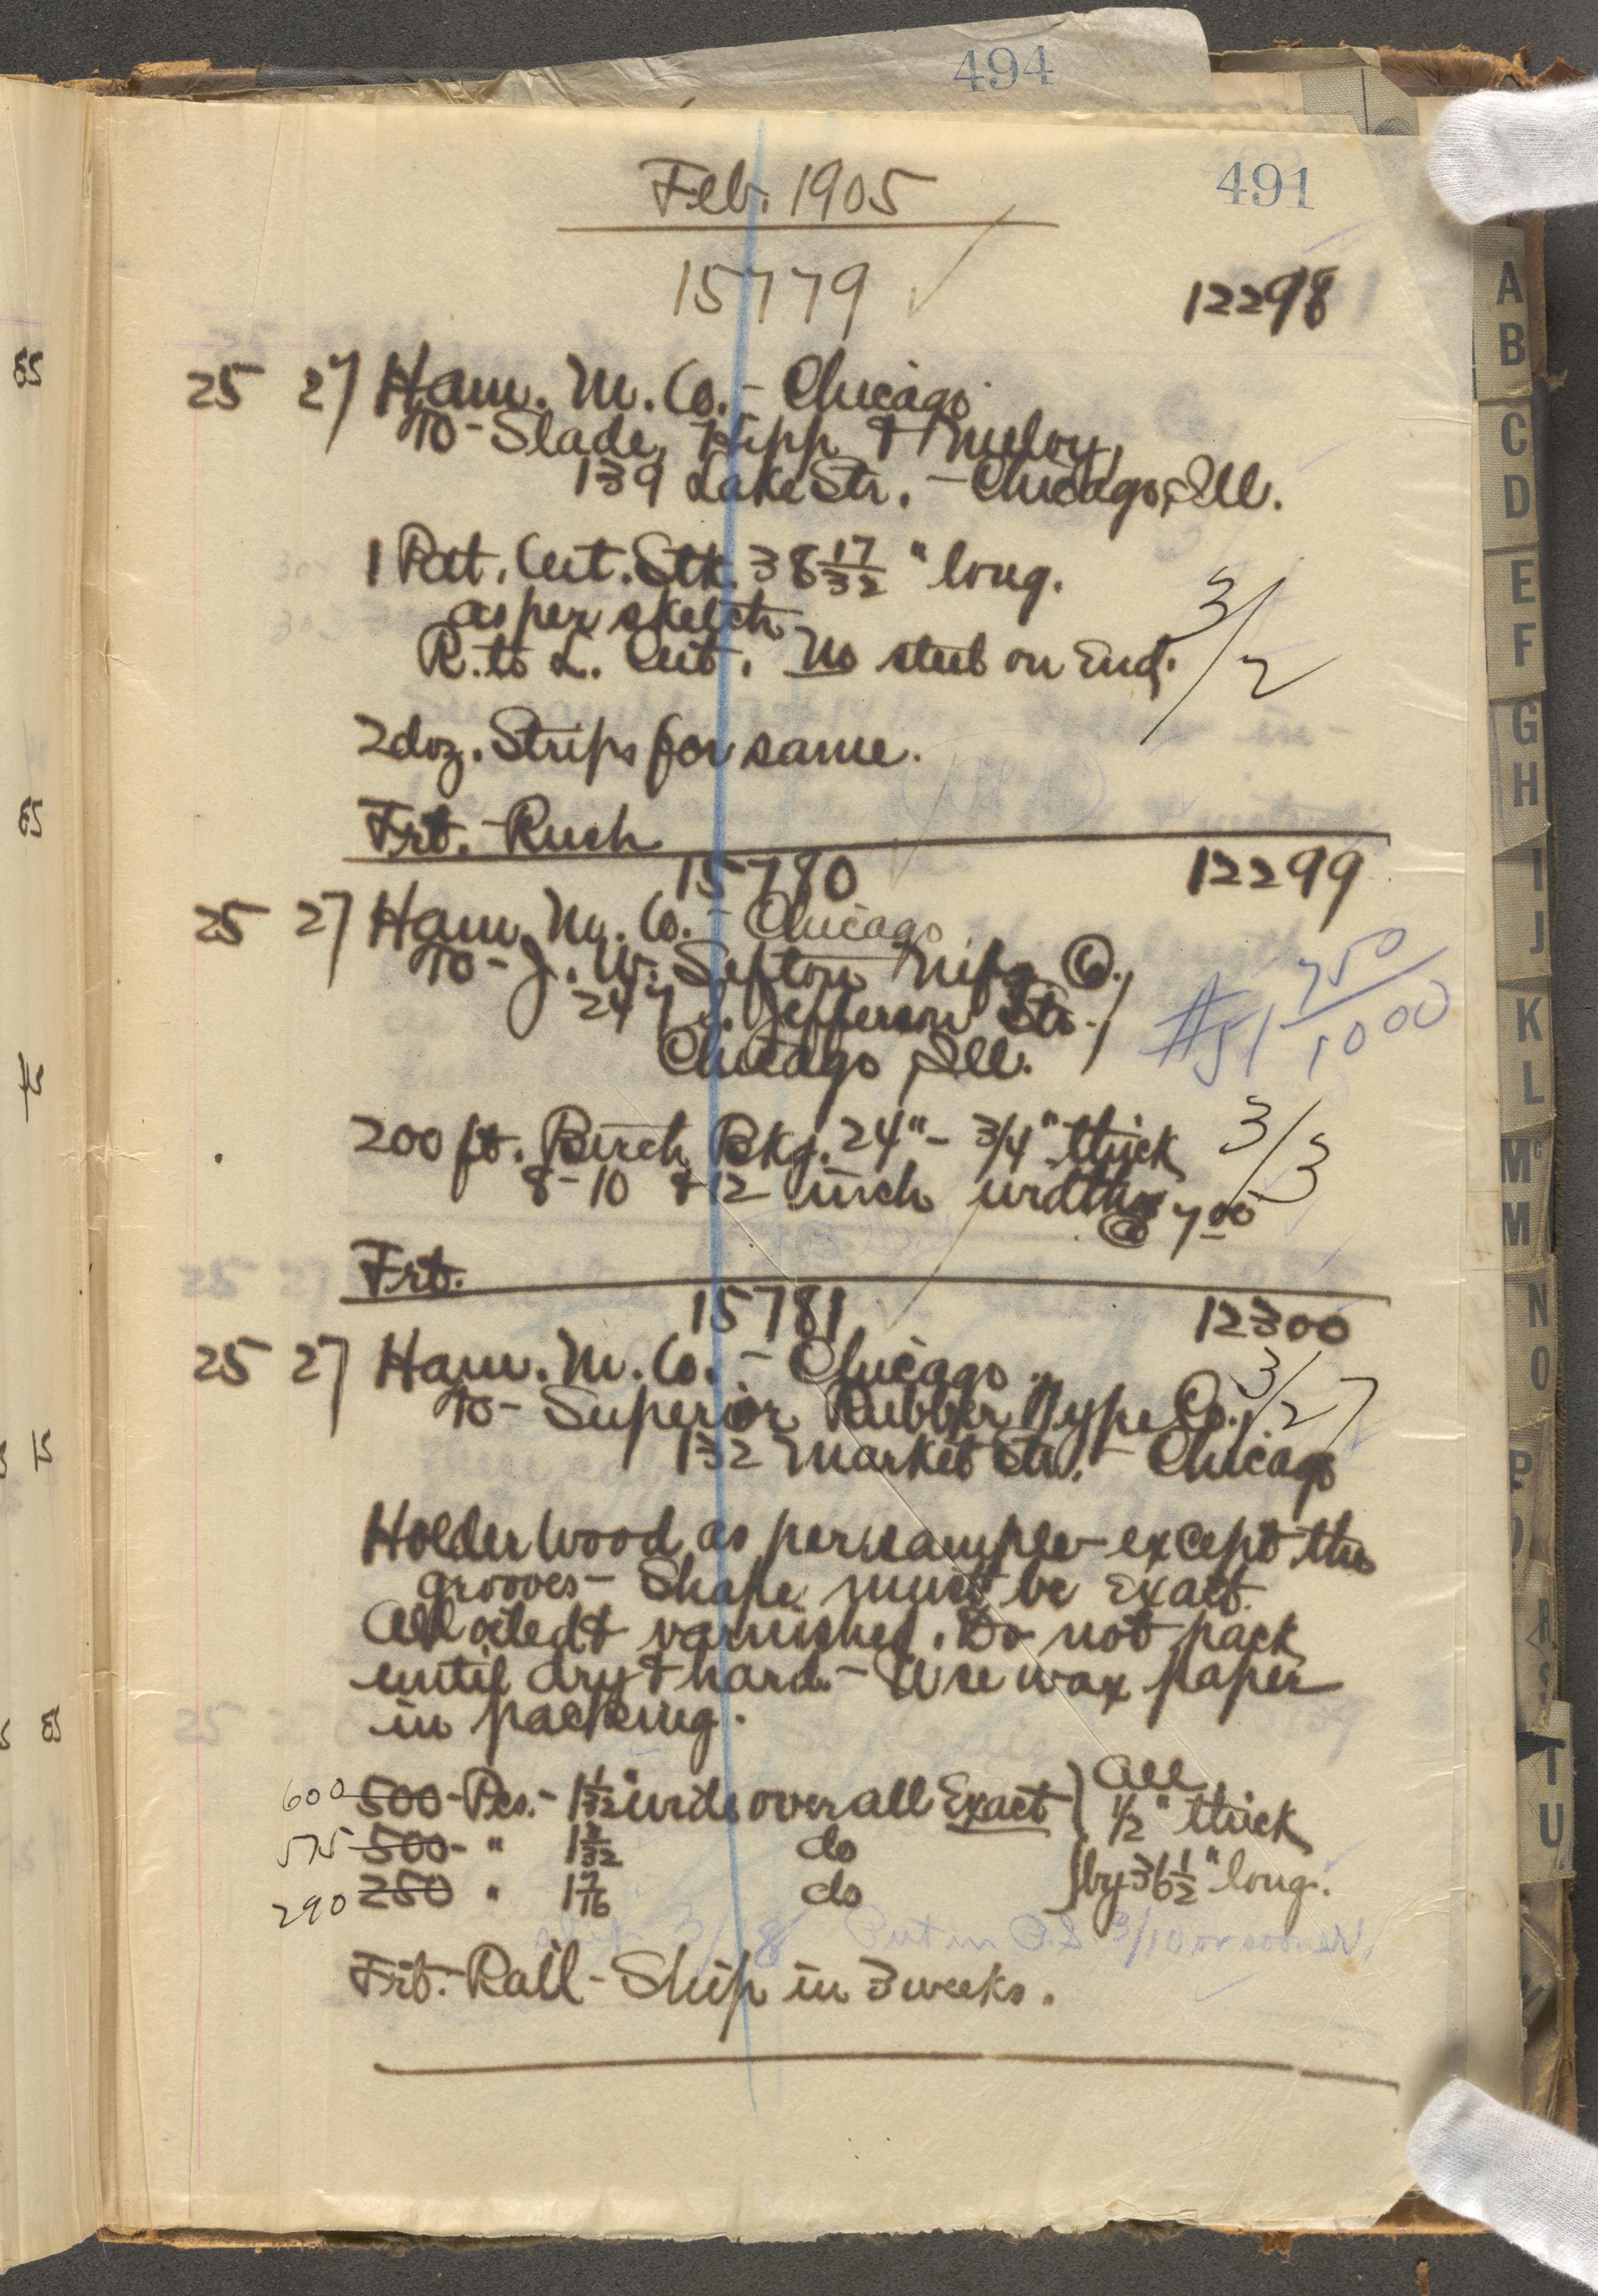 494
491
Feb. 1905
15779 ✓ 12298
25 27 Ham. M. Co. - Chicago
To - Slade, Hipp & Meloy,
139 Lake Str. - Chicago, Ill.
1 Pat. Cut. Stk. 38 17/32 " long.
as per sketch
R. to L. Cut. No steel on End.
3/2
2 doz. Strips for same.
Frt. - Rush
15780 12299
25 27 Ham. M. Co. - Chicago
To - J. W. Sefton Mfg. Co.,
247 S. Jefferson Str.,
Chicago, Ill.
#51 750/1000
200 ft. Birch Bkg. 24" - 3/4" thick
8 - 10 & 12 inch widths
@ 7 00
3/3
Frt.
15781 12300
25 27 Ham. M. Co. - Chicago
3/27
To - Superior Rubber Type Co.,
132 Market Str. - Chicago
Holder Wood as per sample - except the
grooves - Shape must be exact.
All oiled & varnished. Do not pack
until dry & hard. - Use wax paper
in packing.
600 500 - Pcs. - 1 1/32" wide over all Exact } All
1/2" thick
575 500 - " 1 3/32 do
290 250 " 1 7/16 do } by 36 1/2" long.
3/18 Put in O.S. 3/10 or sooner
Frt. - Rail - Ship in 3 weeks.
A
B
C
D
E
F
G
H
I
J
K
L
Mc
M
N
O
P
R
S
T
U